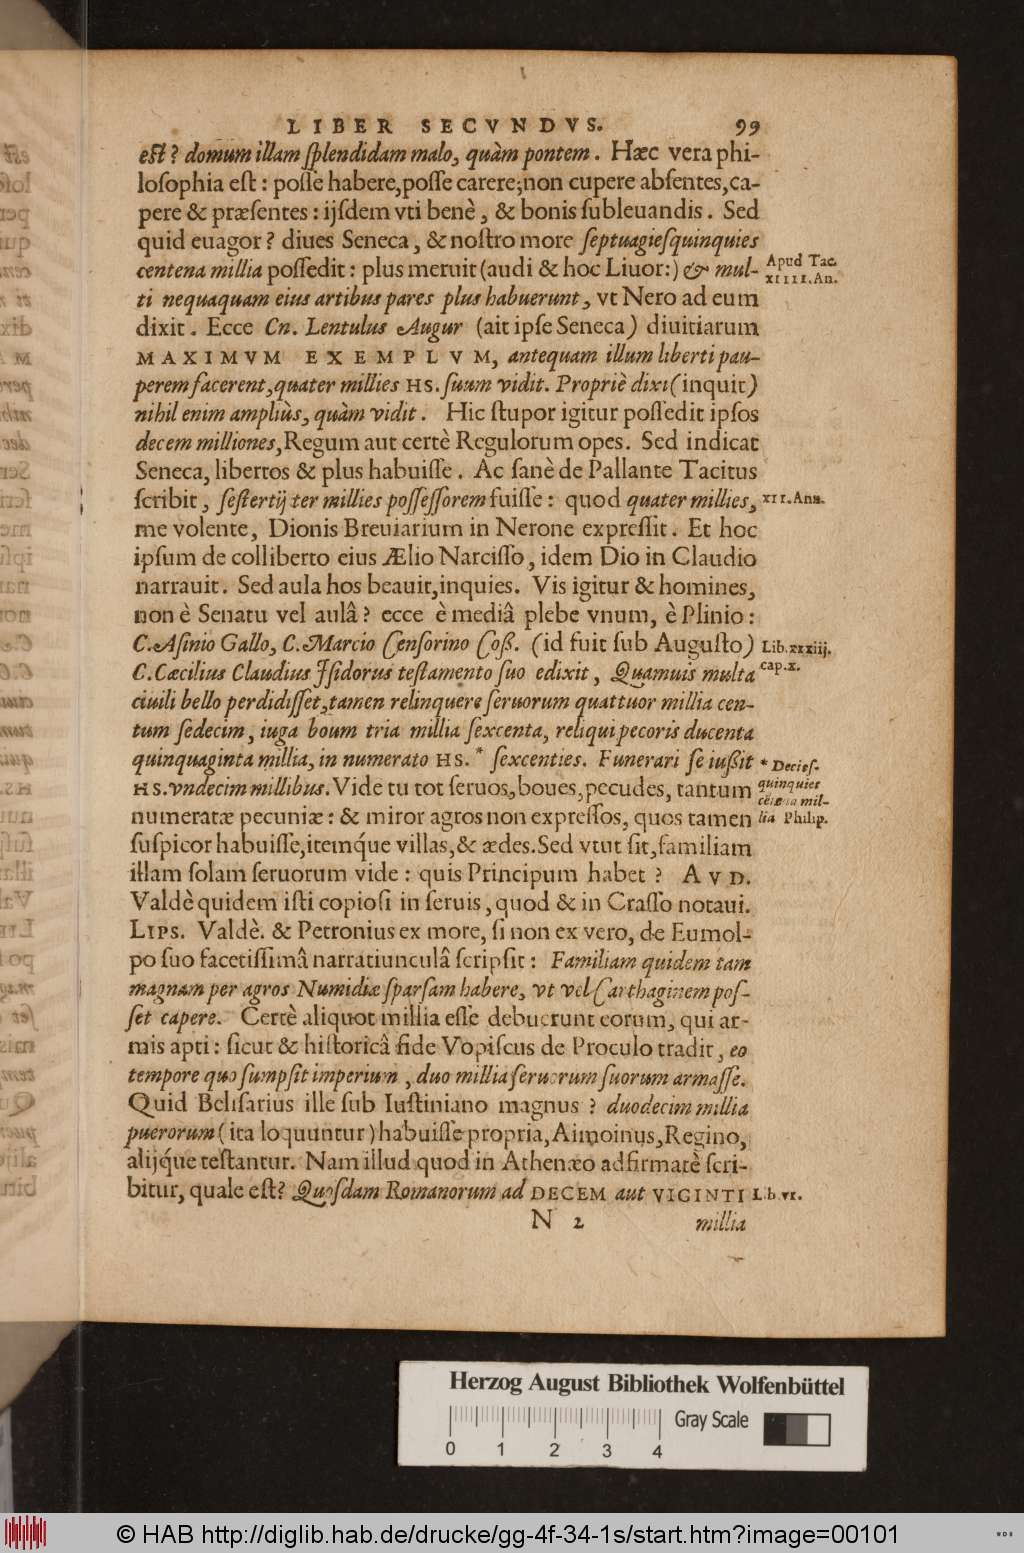 LIBER SECVNDVS. 99
eſt? domum illam ſplendidam malo, quàm pontem. Hæc vera phi-
loſophia eſt: poſſe habere, poſſe carere; non cupere abſentes, ca-
pere & præſentes: ijſdem vti benè, & bonis ſubleuandis. Sed
quid euagor? diues Seneca, & noſtro more ſeptuagieſquinquies
centena millia poſſedit: plus meruit (audi & hoc Liuor:) & mul-
Apud Tac.
XIIII. An.
ti nequaquam eius artibus pares plus habuerunt, vt Nero ad eum
dixit. Ecce Cn. Lentulus Augur (ait ipſe Seneca) diuitiarum
MAXIMVM EXEMPLVM, antequam illum liberti pau-
perem facerent, quater millies HS. ſuum vidit. Propriè dixi (inquit)
nihil enim ampliùs, quàm vidit. Hic ſtupor igitur poſſedit ipſos
decem milliones, Regum aut certè Regulorum opes. Sed indicat
Seneca, libertos & plus habuiſſe. Ac ſanè de Pallante Tacitus
ſcribit, ſeſtertij ter millies poſſeſſorem fuiſſe: quod quater millies,
XII. Ann.
me volente, Dionis Breuiarium in Nerone expreſſit. Et hoc
ipſum de colliberto eius Ælio Narciſſo, idem Dio in Claudio
narrauit. Sed aula hos beauit, inquies. Vis igitur & homines,
non è Senatu vel aulâ? ecce è mediâ plebe vnum, è Plinio:
C. Aſinio Gallo, C. Marcio Cenſorino Coß. (id fuit ſub Auguſto)
Lib. xxxiij.
cap. x.
C. Cæcilius Claudius Iſidorus teſtamento ſuo edixit, Quamuis multa
ciuili bello perdidiſſet, tamen relinquere ſeruorum quattuor millia cen-
tum ſedecim, iuga boum tria millia ſexcenta, reliqui pecoris ducenta
quinquaginta millia, in numerato HS.* ſexcenties. Funerari ſe iußit
* Decieſ-
quinquies
cētena mil-
lia Philip.
HS. vndecim millibus. Vide tu tot ſeruos, boues, pecudes, tantum
numeratæ pecuniæ: & miror agros non expreſſos, quos tamen
ſuſpicor habuiſſe, itemq́ue villas, & ædes. Sed vtut ſit, familiam
illam ſolam ſeruorum vide: quis Principum habet? AVD.
Valdè quidem iſti copioſi in ſeruis, quod & in Craſſo notaui.
LIPS. Valdè. & Petronius ex more, ſi non ex vero, de Eumol-
po ſuo facetiſſimâ narratiunculâ ſcripſit: Familiam quidem tam
magnam per agros Numidiæ ſparſam habere, vt vel Carthaginem poſ-
ſet capere. Certè aliquot millia eſſe debuerunt eorum, qui ar-
mis apti: ſicut & hiſtoricâ fide Vopiſcus de Proculo tradit, eo
tempore quo ſumpſit imperium, duo millia ſeruorum ſuorum armaſſe.
Quid Beliſarius ille ſub Iuſtiniano magnus? duodecim millia
puerorum (ita loquuntur) habuiſſe propria, Aimoinus, Regino,
alijq́ue teſtantur. Nam illud quod in Athenæo adfirmatè ſcri-
bitur, quale eſt? Quoſdam Romanorum ad DECEM aut VIGINTI
Lib. VI.
N 2 millia
Herzog August Bibliothek Wolfenbüttel
Gray Scale
0 1 2 3 4
© HAB http://diglib.hab.de/drucke/gg-4f-34-1s/start.htm?image=00101